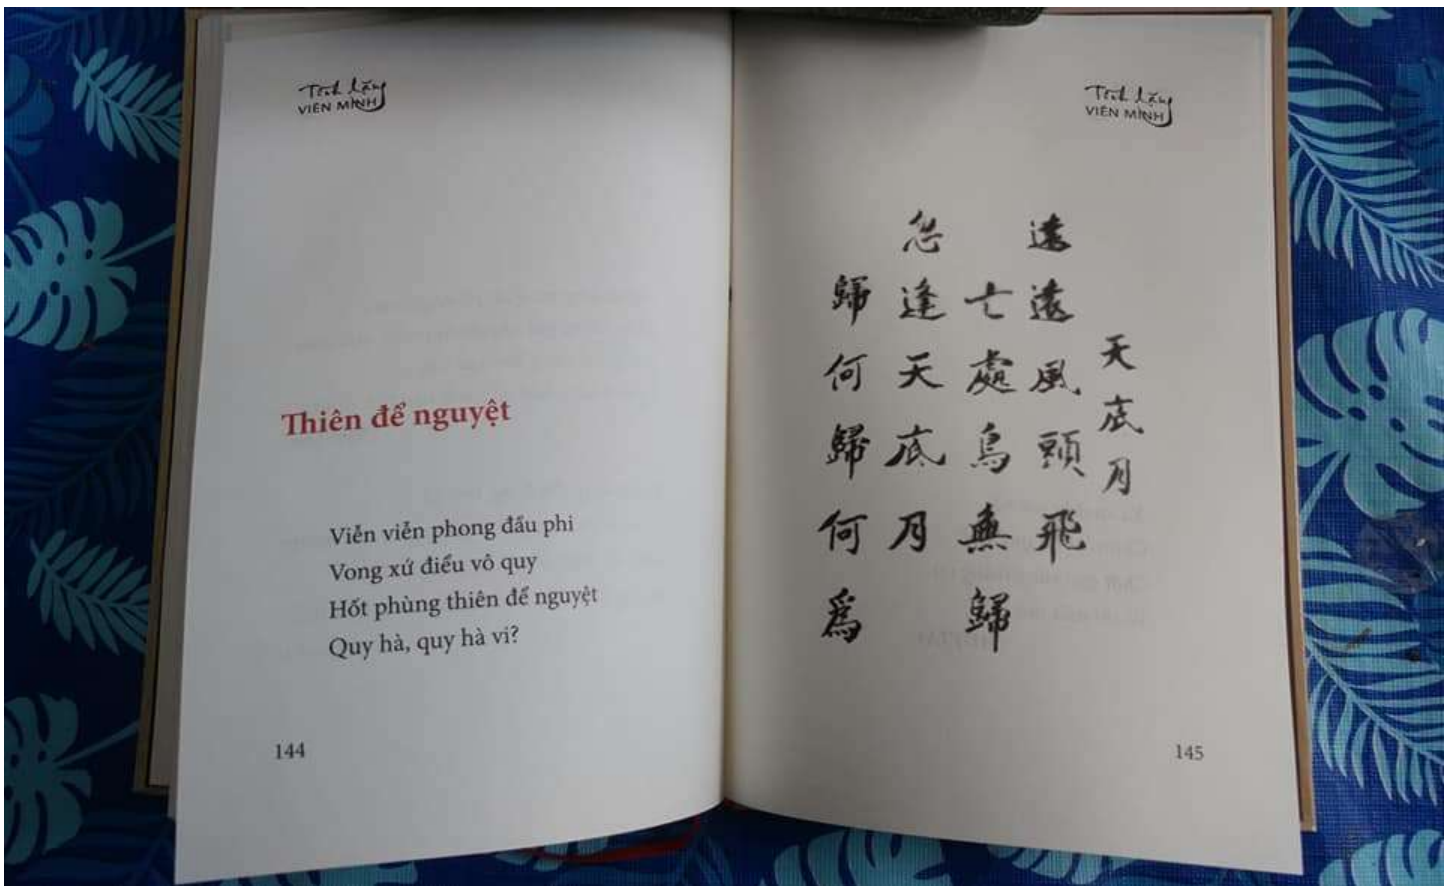 Tĩnh lặng
VIÊN MINH
Thiên để nguyệt
Viễn viễn phong đầu phi
Vong xứ điểu vô quy
Hốt phùng thiên để nguyệt
Quy hà, quy hà vi?
144
Tĩnh lặng
VIÊN MINH
天底月
遠遠風頭飛
亡處鳥無歸
忽逢天底月
歸何歸何爲
145